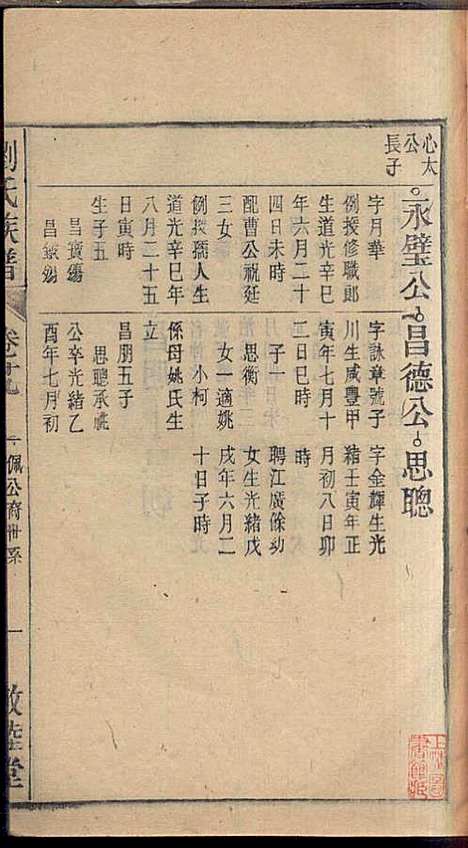 心太
公
長子
永璧公 昌德公 思聰
字月華
例授修職郎
生道光辛巳
年六月二十
四日未時
配曹公祝廷
三女
例授孺人生
道光辛巳年
八月二十五
日寅時
生子五
昌寶殤
昌
殤
字詠章號子
川生咸豐甲
寅年七月十
二日巳時
子一
思衡
女一適姚
小柯
係母姚氏生
立
昌朋五子
思聰承祧
公卒光緒乙
酉年七月初
字金輝生光
緒壬寅年正
月初八日卯
時
聘江廣馀幼
女生光緒戊
戌年六月二
十日子時
劉氏族譜
卷十九
佩公房世系
一
敦睦堂
上圖
書館